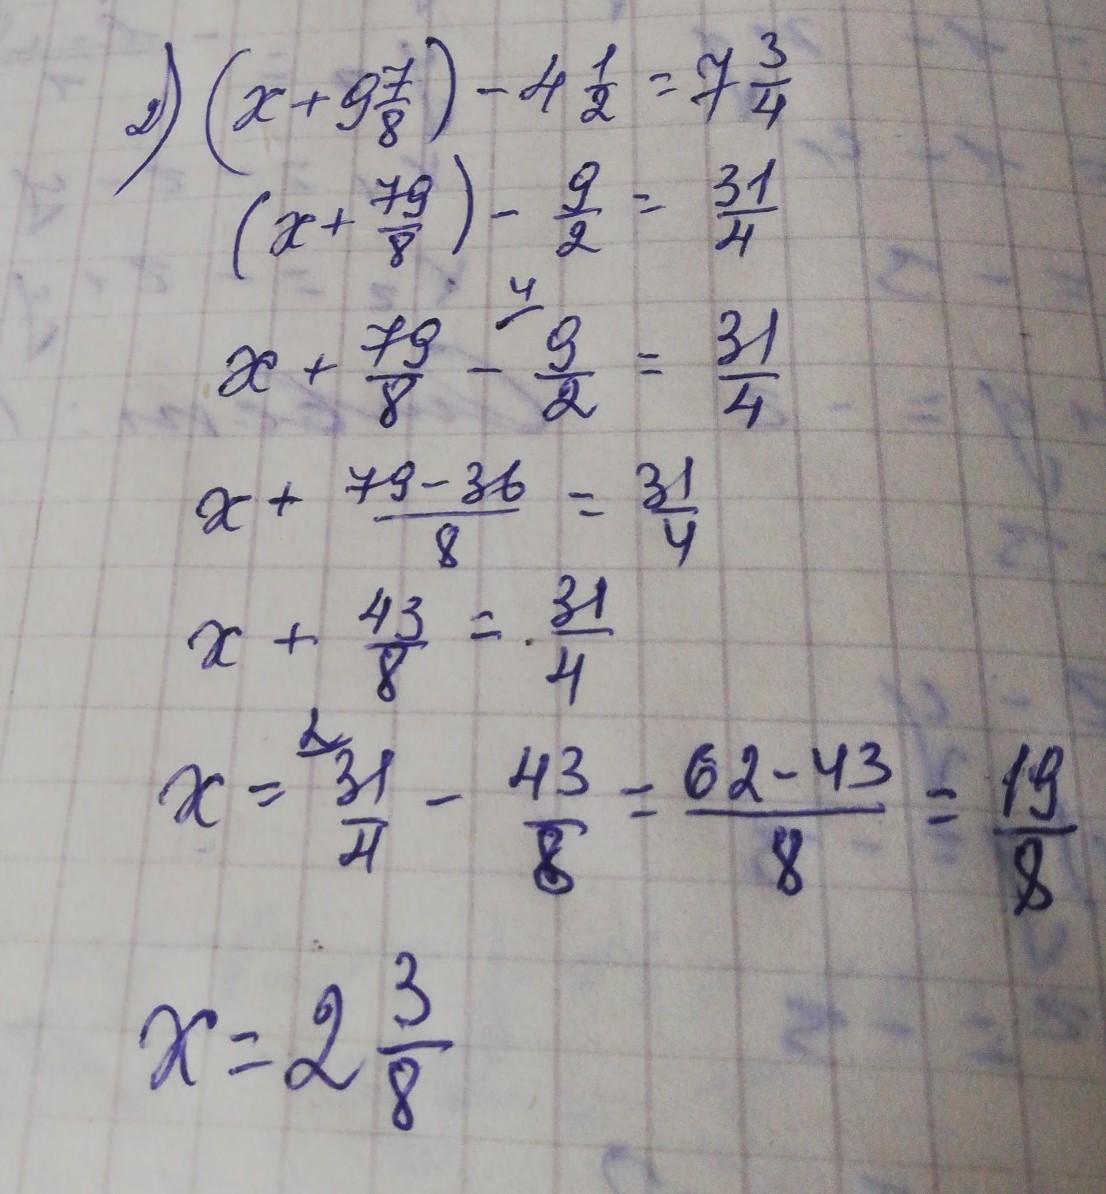 2) (x + 9 7/8) - 4 1/2 = 7 3/4
(x + 79/8) - 9/2 = 31/4
x + 79/8 - 4 9/2 = 31/4
x + 79-36/8 = 31/4
x + 43/8 = 31/4
x = 2 31/4 - 43/8 = 62-43/8 = 19/8
x = 2 3/8